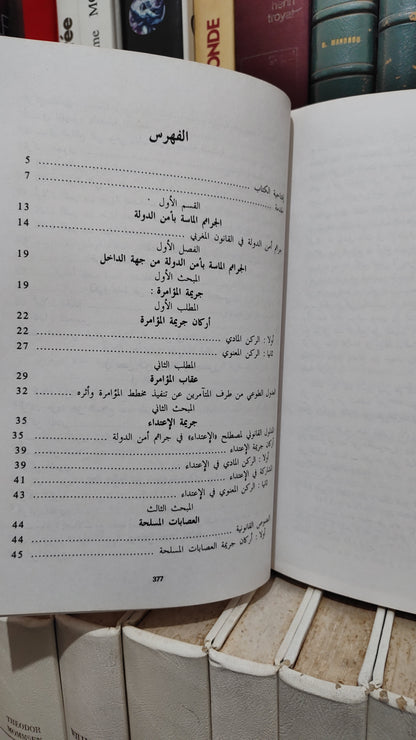 ée
ONDE
henri
troyat
الفهرس
إفتتاحية الكتاب ........ 5
مقدمة ........ 7
القسم الأول
الجرائم الماسة بأمن الدولة 13
جرائم أمن الدولة في القانون المغربي ........ 14
الفصل الأول
الجرائم الماسة بأمن الدولة من جهة الداخل 19
المبحث الأول
جريمة المؤامرة : 19
المطلب الأول
أركان جريمة المؤامرة 22
أولا : الركن المادي ........ 22
ثانيا : الركن المعنوي ........ 27
المطلب الثاني
عقاب المؤامرة 29
العدول الطوعي من طرف المتآمرين عن تنفيذ مخطط المؤامرة وأثره ........ 32
المبحث الثاني
جريمة الإعتداء 35
المدلول القانوني لمصطلح «الإعتداء» في جرائم أمن الدولة ........ 35
أركان جريمة الإعتداء ........ 39
أولا : الركن المادي في الإعتداء ........ 39
المشاركة في الإعتداء ........ 41
ثانيا : الركن المعنوي في الإعتداء ........ 43
المبحث الثالث
العصابات المسلحة 44
النصوص القانونية ........ 44
أولا : أركان جريمة العصابات المسلحة ........ 45
377
THEODOR
MOMMSEN